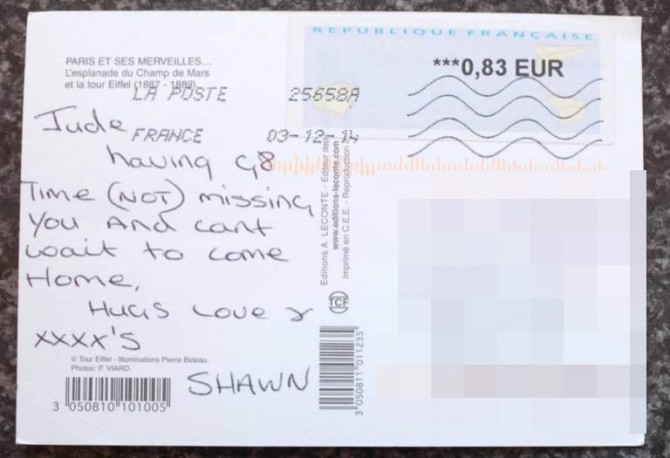 REPUBLIQUE FRANÇAISE
***0,83 EUR
PARIS ET SES MERVEILLES...
L'esplanade du Champ de Mars
et la tour Eiffel (1887 - 1889)
LA POSTE 25658A
FRANCE 03-12-14
Jude
having G8
Time (NOT) missing
You And cant
wait to come
Home,
Hugs Love &
xxxx's
SHAWN
© Tour Eiffel - Illuminations Pierre Bideau.
Photos: P. VIARD.
3 050810 101005
Editions A. LECONTE - Editeur
www.editions-leconte.com
Imprimé en C.E.E. - Reproduction
TCF
3 050811 011235